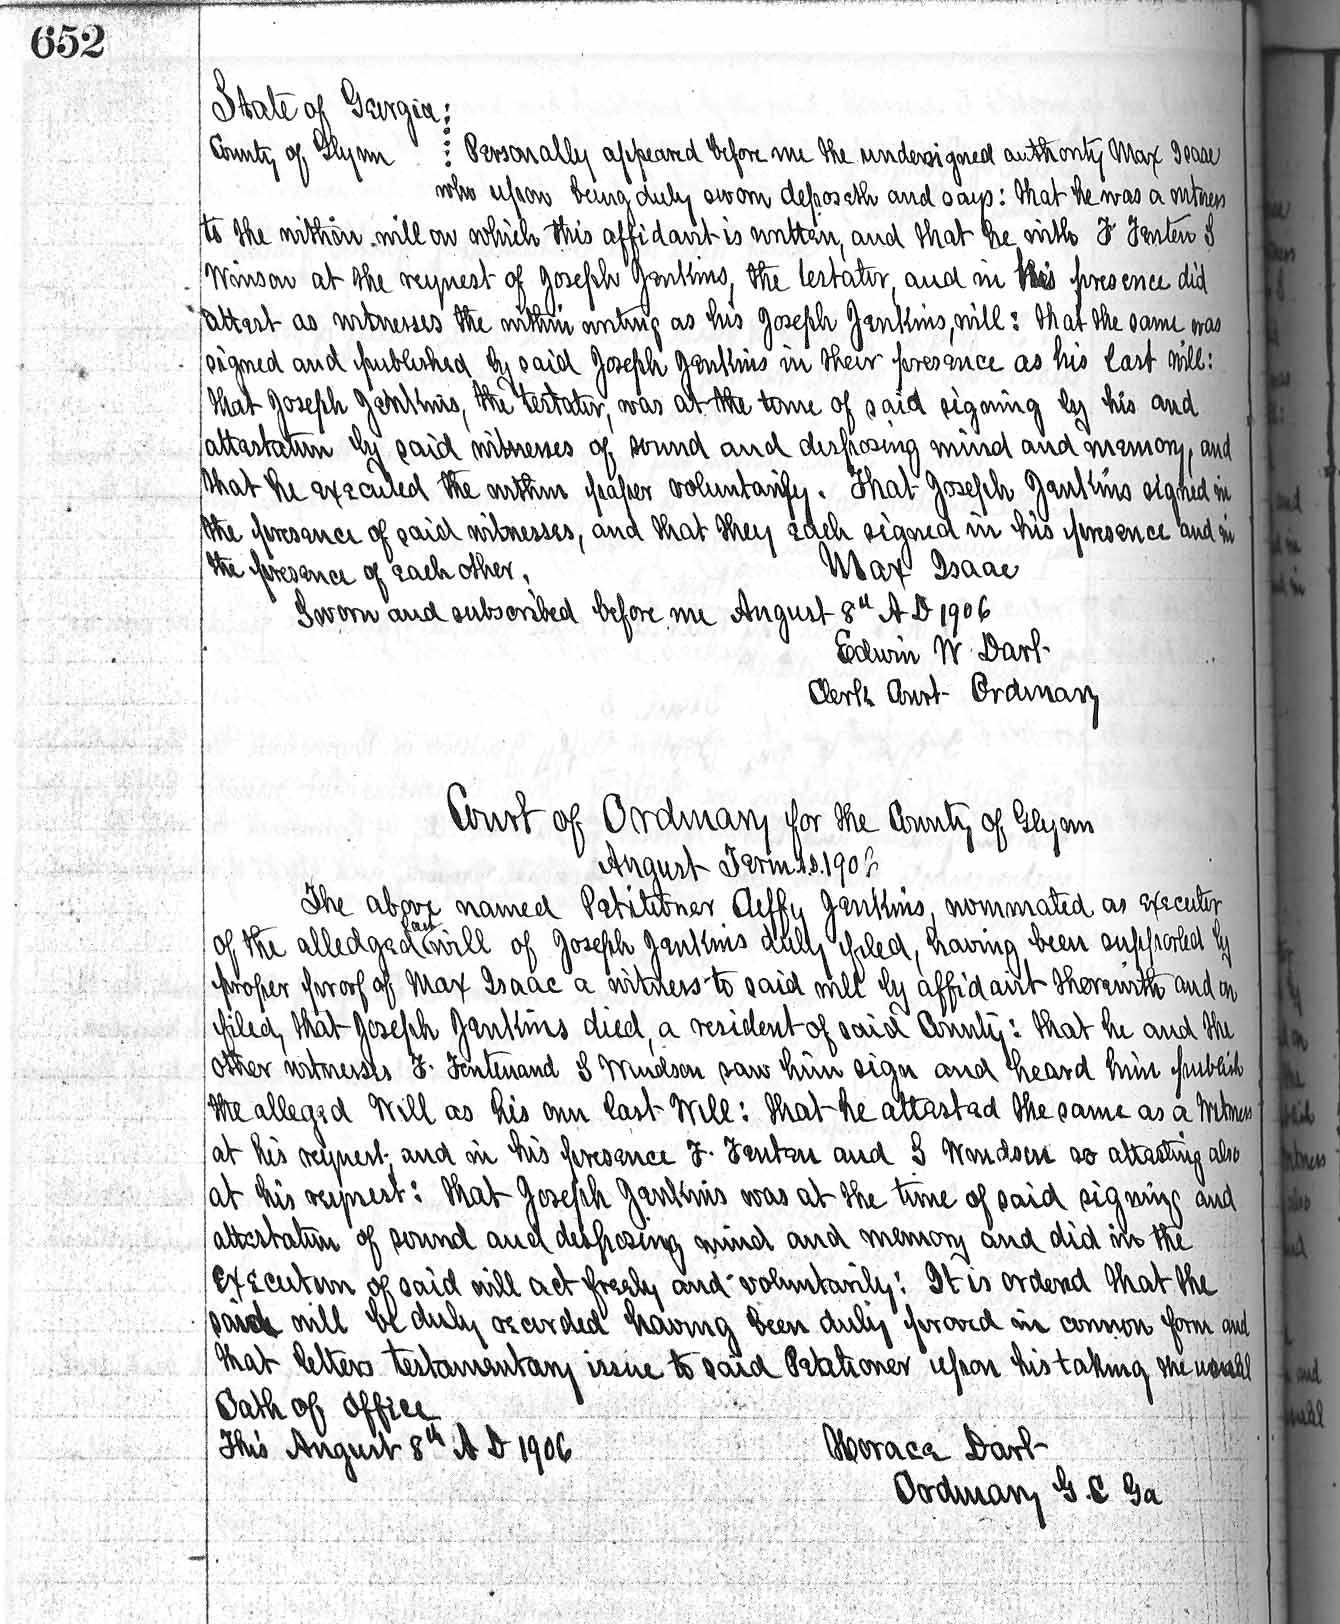 652
State of Georgia
County of Glynn Personally appeared before me the undersigned authority Max Isaac
who upon being duly sworn deposeth and says: that he was a witness
to the within will on which this affidavit is written, and that he with F Fenten S
Winson at the request of Joseph Jenkins, the testator, and in his presence did
attest as witnesses the within writing as his Joseph Jenkins, will: that the same was
signed and published by said Joseph Jenkins in their presence as his last will:
that Joseph Jenkins, the testator, was at the time of said signing by his and
attestation by said witnesses of sound and desposing mind and memory, and
that he executed the within paper voluntarily. That Joseph Jenkins signed in
the presence of said witnesses, and that they each signed in his presence and in
the presence of each other.
Max Isaac
Sworn and subscribed before me August 8th A D 1906
Edwin W Dart
Clerk Court Ordinary
Court of Ordinary for the County of Glynn
August Term 1906
The above named Petitioner Aeffy Jenkins, nominated as executor
of the alledged last will of Joseph Jenkins duly filed, having been supported by
proper proof of Max Isaac a witness to said will by affidavit therewith and on
filed, that Joseph Jenkins died, a resident of said County: that he and the
other witnesses F. Fenten and S Windson saw him sign and heard him publish
the alleged Will as his own last Will: that he attested the same as a Witness
at his request, and in his presence F. Fenten and S Windson so attesting also
at his request: that Joseph Jenkins was at the time of said signing and
attestation of sound and desposing mind and memory and did in the
execution of said will act freely and voluntarily: It is ordered that the
said will be duly recorded having been duly proved in common form and
that letters testamentary issue to said Petetioner upon his taking the usual
Oath of office
This August 8th A D 1906
Horace Dart
Ordinary G. C Ga